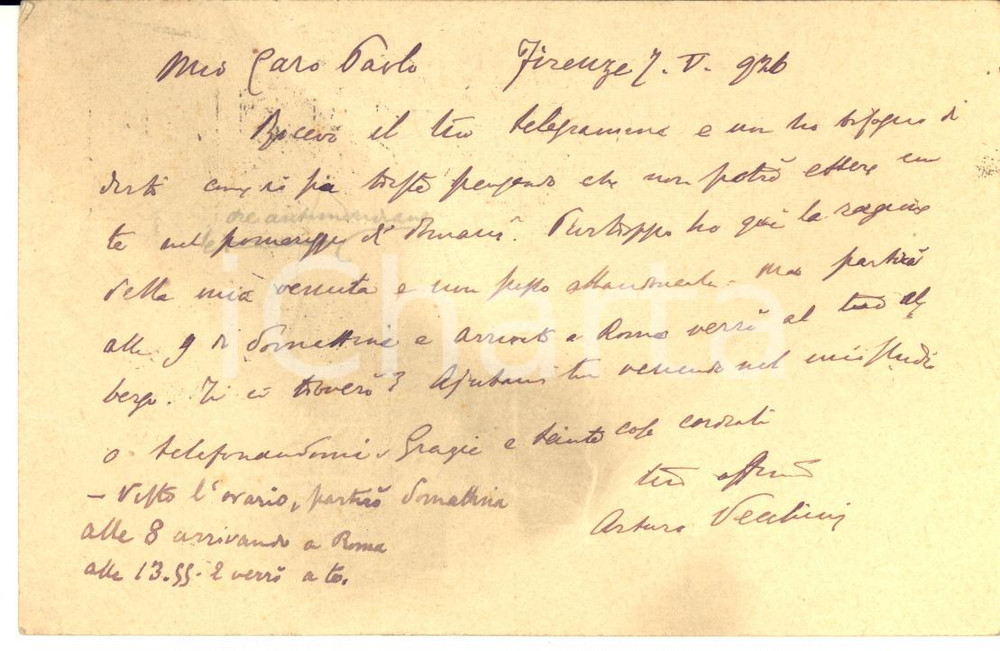 Mio Caro Paolo Firenze 7. V. 926
Ricevo il tuo telegramma e non ho bisogno di
dirti come io sia triste pensando che non potrò essere con
te nel pomeriggio di domani. Purtroppo ho qui la ragione
della mia venuta e non posso abbandonarla. Ma partirò
alle 9 di domattina e arrivato a Roma verrò al tuo al
bergo. Ti ci troverò? Ajutami tu venendo nel mio studio
o telefonandomi. Grazie e tante cose cordiali
tuo affmo
Arturo Vecchini
- Visto l'orario, partirò domattina
alle 8 arrivando a Roma
alle 13.55. E verrò a te.
iCharta